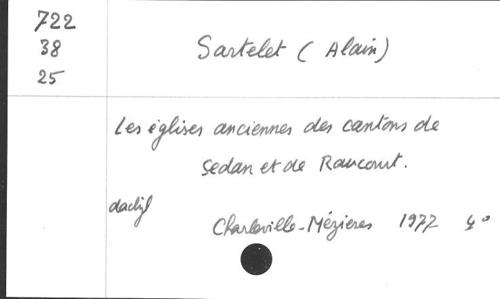 722
38
25
Sartelet (Alain)
Les églises anciennes des cantons de
Sedan et de Raucourt.
dactyl
Charleville-Mézières 1977 4°